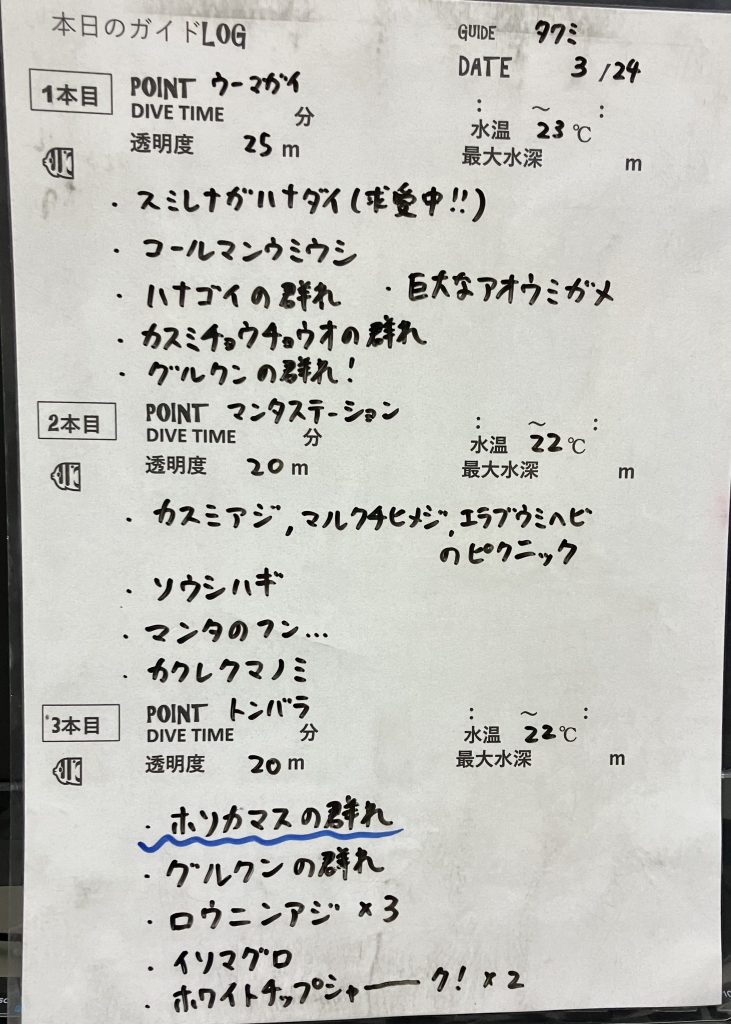 本日のガイドLOG
GUIDE タクミ
DATE 3 /24
1本目 POINT ウーマガイ
DIVE TIME 分 : ～ :
透明度 25 m 水温 23 ℃
最大水深 m
・スミレナガハナダイ(求愛中!!)
・コールマンウミウシ
・ハナゴイの群れ ・巨大なアオウミガメ
・カスミチョウチョウオの群れ
・グルクンの群れ!
2本目 POINT マンタステーション
DIVE TIME 分 : ～ :
透明度 20 m 水温 22 ℃
最大水深 m
・カスミアジ,マルクチヒメジ,エラブウミヘビ
のピクニック
・ソウシハギ
・マンタのフン...
・カクレクマノミ
3本目 POINT トンバラ
DIVE TIME 分 : ～ :
透明度 20 m 水温 22 ℃
最大水深 m
・ホソカマスの群れ
・グルクンの群れ
・ロウニンアジ ×3
・イソマグロ
・ホワイトチップシャーーク! ×2